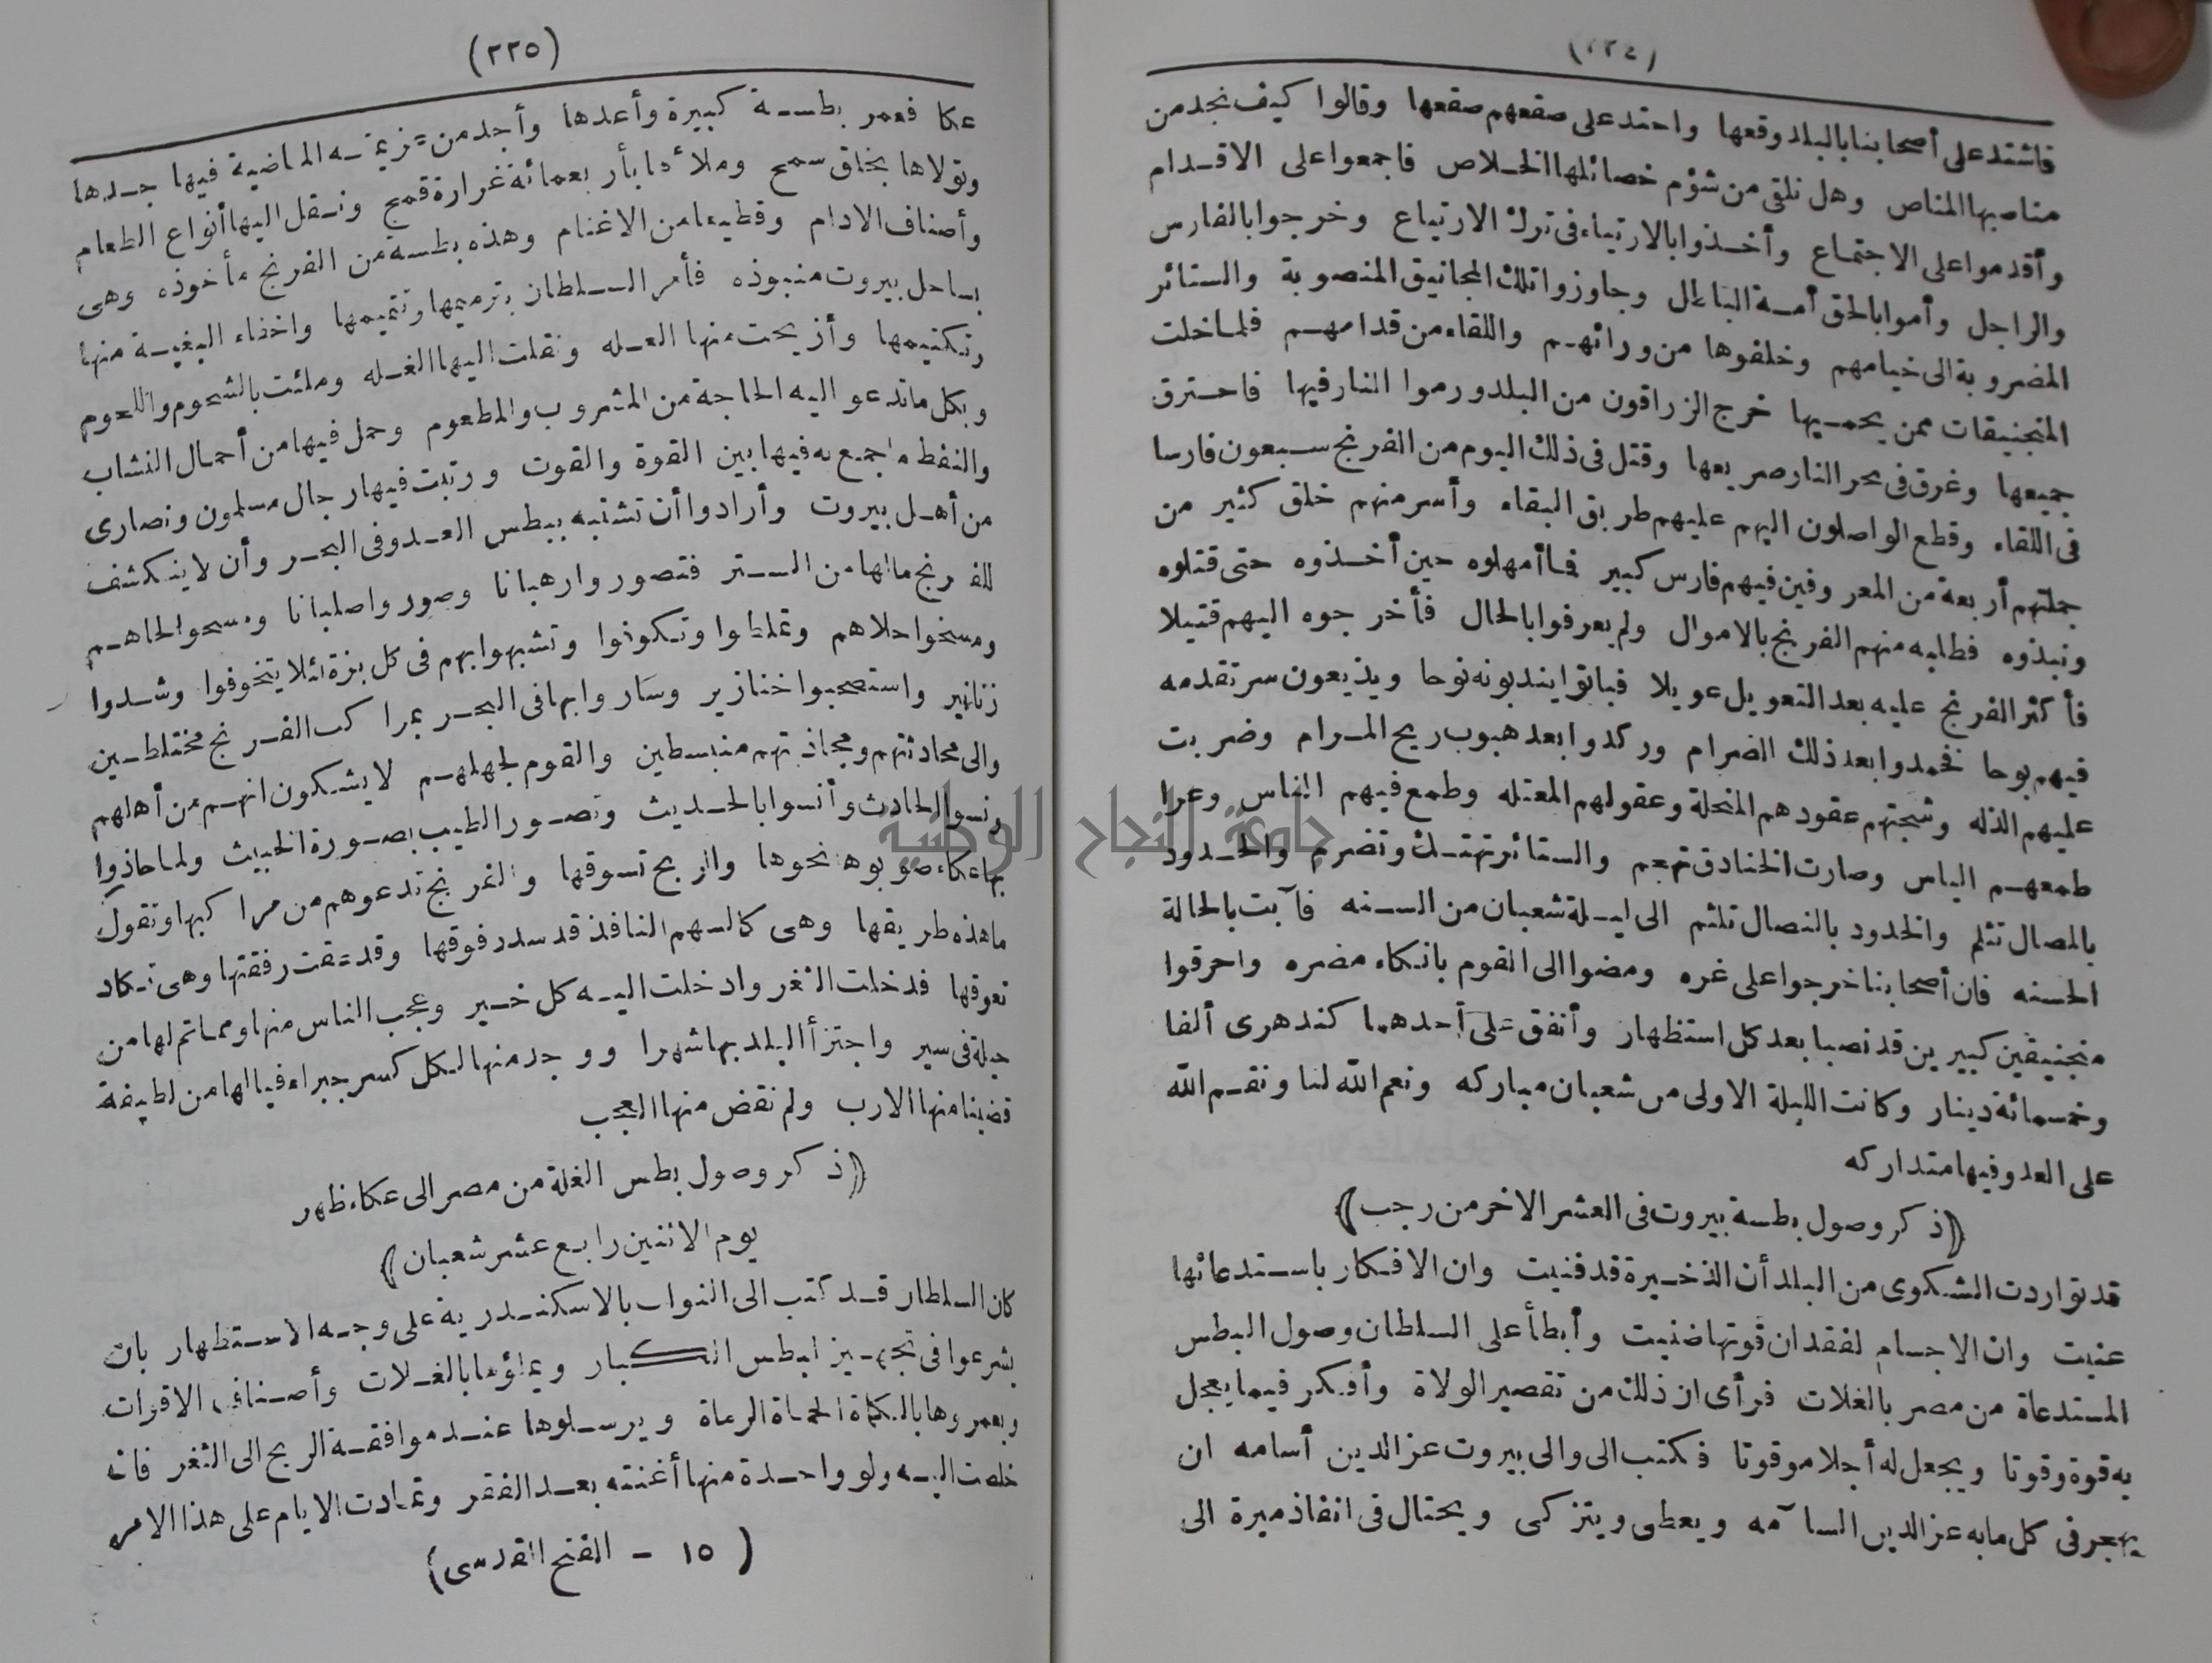 (٢٢٤)
فاشتد على أصحابنا بالبلد وقعها واحتد على صقعهم صقعها وقالوا كيف نجد من
مناصبها المناص وهل نلقى من شؤم خصائلها الخلاص فاجمعوا على الاقدام
وأقدموا على الاجتماع وأخذوا بالارتياء فى ترك الارتياع وخرجوا بالفارس
والراجل وأموا بالحق أمة الباطل وجاوزوا تلك المجانيق المنصوبة والستائر
المضروبة الى خيامهم وخلفوها من ورائهم واللقاء من قدامهم فلما خلت
المنجنيقات ممن يحميها خرج الزراقون من البلد ورموا النار فيها فاحترق
جميعها وغرق فى بحر النار صريعها وقتل فى ذلك اليوم من الفرنج سبعون فارسا
فى اللقاء وقطع الواصلون اليهم عليهم طريق البقاء وأسر منهم خلق كثير من
جملتهم أربعة من المعروفين فيهم فارس كبير فما أمهلوه حين أخذوه حتى قتلوه
ونبذوه فطلبه منهم الفرنج بالاموال ولم يعرفوا بالحال فأخرجوه اليهم قتيلا
فأكثر الفرنج عليه بعد التعويل عويلا فباتوا يندبونه نوحا ويذيعون سر تقدمه
فيهم بوحا فخمدوا بعد ذلك الضرام وركدوا بعد هبوب ريح المرام وضربت
عليهم الذله وشجتهم عقودهم المنحلة وعقولهم المعتله وطمع فيهم الناس وعرا
طمعهم الياس وصارت الخنادق تهجم والستائر تهتك وتضرم والحدود
بالمصال تثلم والخدود بالنصال تلثم الى ليلة شعبان من السنه فآبت بالحالة
الحسنه فان أصحابنا خرجوا على غره ومضوا الى القوم بانكاء مضره واحرقوا
منجنيقين كبيرين قد نصبا بعد كل استظهار وأنفق على أحدهما كندهرى ألفا
وخمسمائة دينار وكانت الليلة الاولى من شعبان مباركه ونعم الله لنا ونقم الله
على العدو فيها متداركه
﴿ذكر وصول بطسة بيروت فى العشر الاخر من رجب﴾
قد تواردت الشكوى من البلد أن الذخيرة قد فنيت وان الافكار باستدعائها
عنيت وان الاجسام لفقدان قوتها ضنيت وأبطأ على السلطان وصول البطس
المستدعاة من مصر بالغلات فرأى ان ذلك من تقصير الولاة وأفكر فيما يعجل
به قوة وقوتا ويجعل له أجلا موقوتا فكتب الى والى بيروت عز الدين أسامه ان
يهجر فى كل ما به عز الدين السآمه ويعطى ويتزكى ويحتال فى انفاذ ميرة الى
(٢٢٥)
عكا فعمر بطسة كبيرة وأعدها وأجد من عزيمته الماضية فيها جدها
وتولاها بخلق سمح وملأها بأربعمائة غرارة قمح ونقل اليها أنواع الطعام
وأصناف الادام وقطيعا من الاغنام وهذه بطسة من الفرنج مأخوذه وهى
بساحل بيروت منبوذه فأمر السلطان بترميمها وتتميمها واخفاء البغية منها
وتكتيمها وأزيحت منها العله ونقلت اليها الغله وملئت بالشحوم واللحوم
وبكل ما تدعو اليه الحاجة من المشروب والمطعوم وحمل فيها من أحمال النشاب
والنفط ما جمع به فيها بين القوة والقوت ورتبت فيها رجال مسلمون ونصارى
من أهل بيروت وأرادوا أن تشتبه ببطس العدو فى البحر وأن لا ينكشف
للفرنج مالها من الستر فتصوروا رهبانا وصوروا صلبانا ومسحوا لحاهم
ومسخوا حلاهم وتملطوا وتكوفوا وتشبهوا بهم فى كل بزة لئلا يتخوفوا وشدوا
زنانير واستصحبوا خنازير وساروا بها فى البحر بمراكب الفرنج مختلطين
والى محادثتهم ومجاذبتهم منبسطين والقوم لجهلهم لا يشكون انهم من أهلهم
ونسوا الحادث وأنسوا بالحديث وتصور الطيب بصورة الخبيث ولما حاذوا
بها عكاء صوبوها نحوها والريح تسوقها والفرنج تدعوهم من مراكبها وتقول
ما هذه طريقها وهى كالسهم النافذ قد سدد فوقها وقد عقت رفقتها وهى تكاد
تعوقها فدخلت الثغر وادخلت اليه كل خير وعجب الناس منها ومما تم لها من
حيلة فى سير واجتزأ البلد بها شهرا ووجد منها لكل كسر جبرا فيالها من لطيفة
قضينا منها الارب ولم نقض منها العجب
﴿ذكر وصول بطس الغلة من مصر الى عكاء ظهر
يوم الاثنين رابع عشر شعبان﴾
كان السلطان قد كتب الى النواب بالاسكندرية على وجه الاستظهار بان
يشرعوا فى تجهيز البطس الكبار ويملؤها بالغلات وأصناف الاقوات
ويعمروها بالكماة الحماة الرماة ويرسلوها عند موافقة الريح الى الثغر فان
خلصت اليه ولو واحدة منها أغنته بعد الفقر وتمادت الايام على هذا الامر
(١٥ - الفتح القدسى)
جامعة النجاح الوطنية